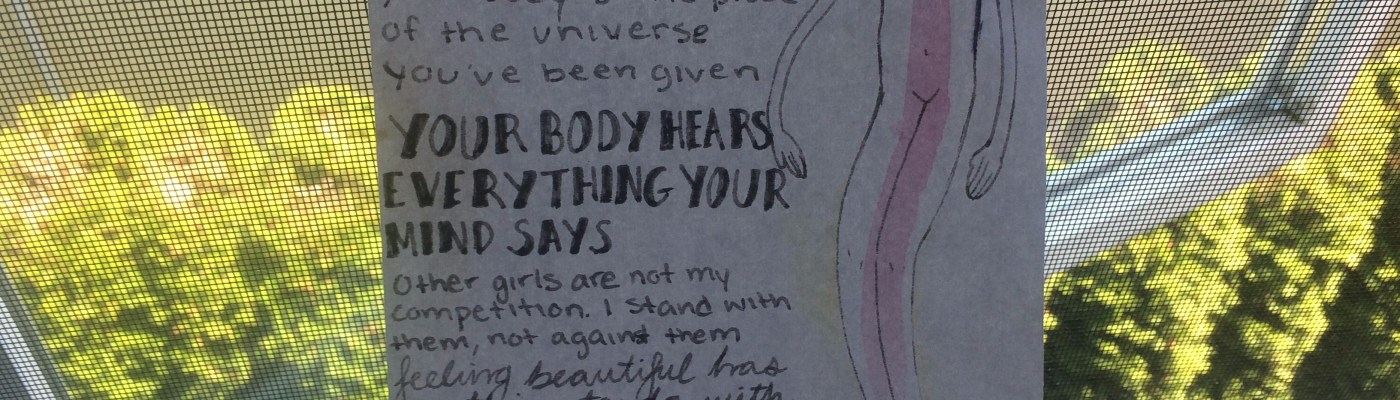 of the universe
you've been given
YOUR BODY HEARS
EVERYTHING YOUR
MIND SAYS
Other girls are not my
competition. I stand with
them, not against them
feeling beautiful has
with